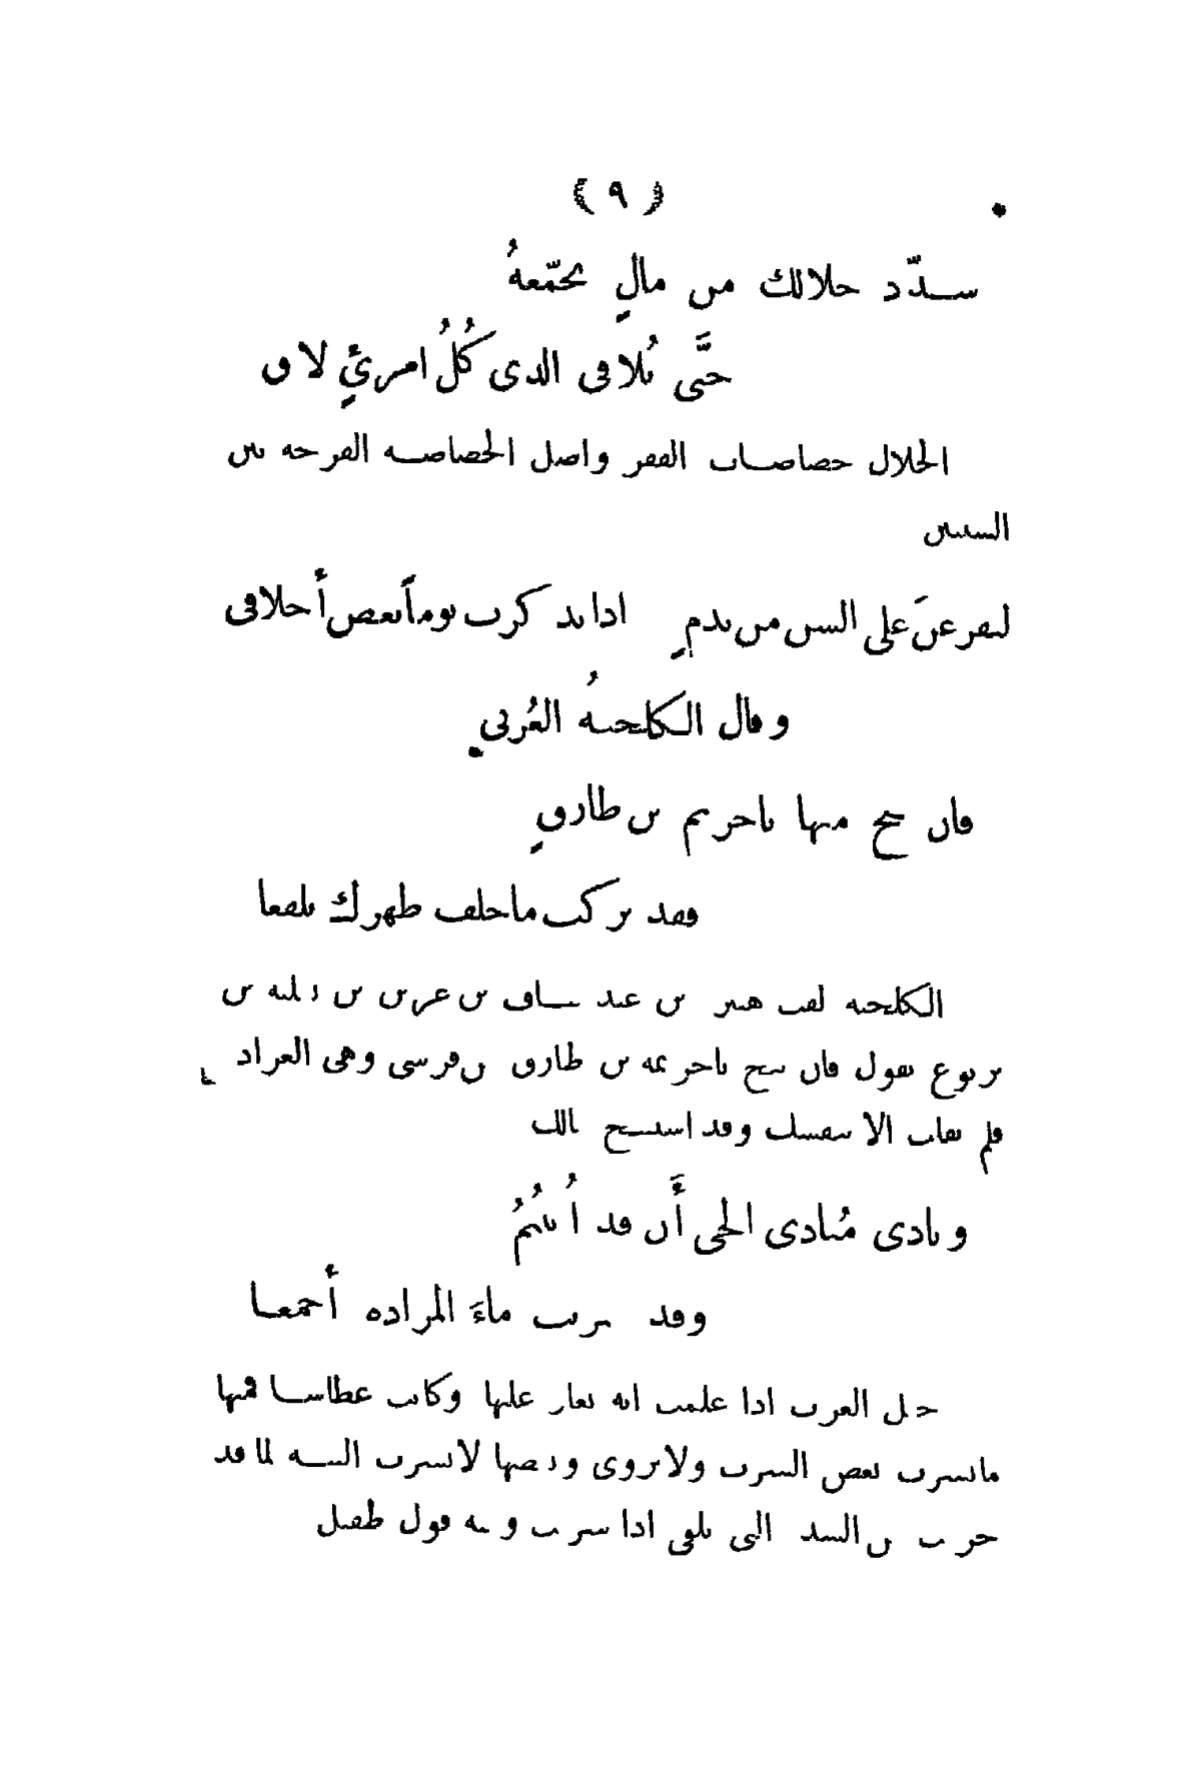 ﴿ ٩ ﴾
سدّد خلالك من مالٍ تجمّعهُ
حتَّى تُلاقى الذى كُلُّ امرئٍ لاق
الخلال خصاصات الفقر واصل الخصاصة الفرجة بين
السنين
لتقرعنَ على السن من ندمٍ اذا تذكرت يوماً بعض أخلاقى
وقال الكلحبةُ العُرنىِ
فان تنج منها ياحزيم بن طارقٍ
فقد تركت ماخلف ظهرك بلقعا
الكلحبة لقب هبيرة بن عبد مناف بن عرين بن ثعلبة بن
يربوع يقول فان تنج ياحزيمة بن طارق من فرسى وهى العرادة
فلم تفلت الا بنفسك وقد استبيح مالك
ونادى مُنادى الحى أَن قد اُتيتُمُ
وقد شربت ماءَ المزادة أجمعا
خيل العرب اذا علمت انه يغار عليها وكانت عطاشا فمنها
مايشرب بعض الشرب ولايروى وبعضها لايشرب البتة لما قد
جربت من الشدة التى تلقى اذا شربت ومنه قول طفيل